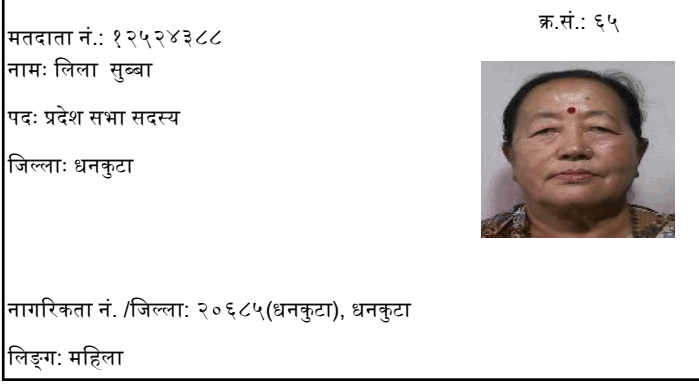 क्र.सं.: ६५
मतदाता नं.: १२५२४३८८
नामः लिला सुब्बा
पदः प्रदेश सभा सदस्य
जिल्लाः धनकुटा
नागरिकता नं. /जिल्ला: २०६८५(धनकुटा), धनकुटा
लिङ्ग: महिला